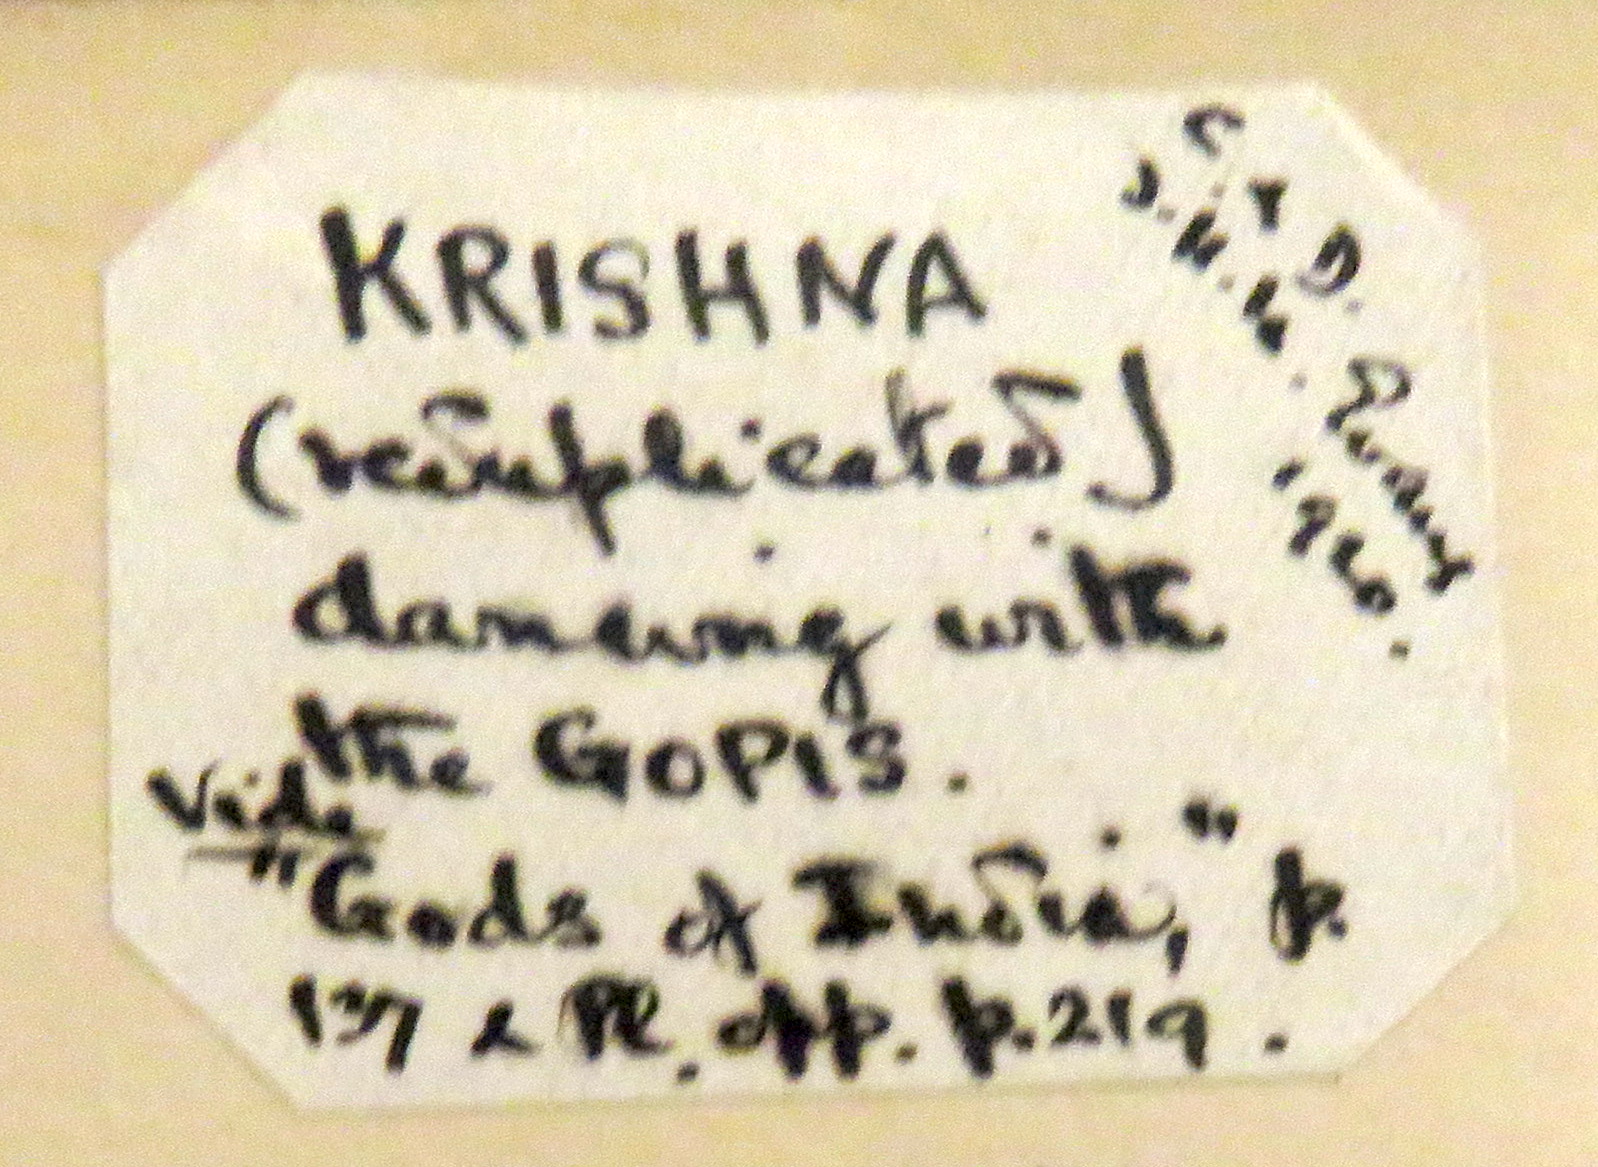 KRISHNA
(reduplicated)
dancing with
the GOPIS.
Vide
"Gods of India," p.
137 & Pl. opp. p. 219.